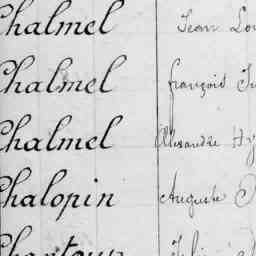 Chalmel Jean Lou
Chalmel François
Chalmel Alexandre Hy
Chalopin Auguste